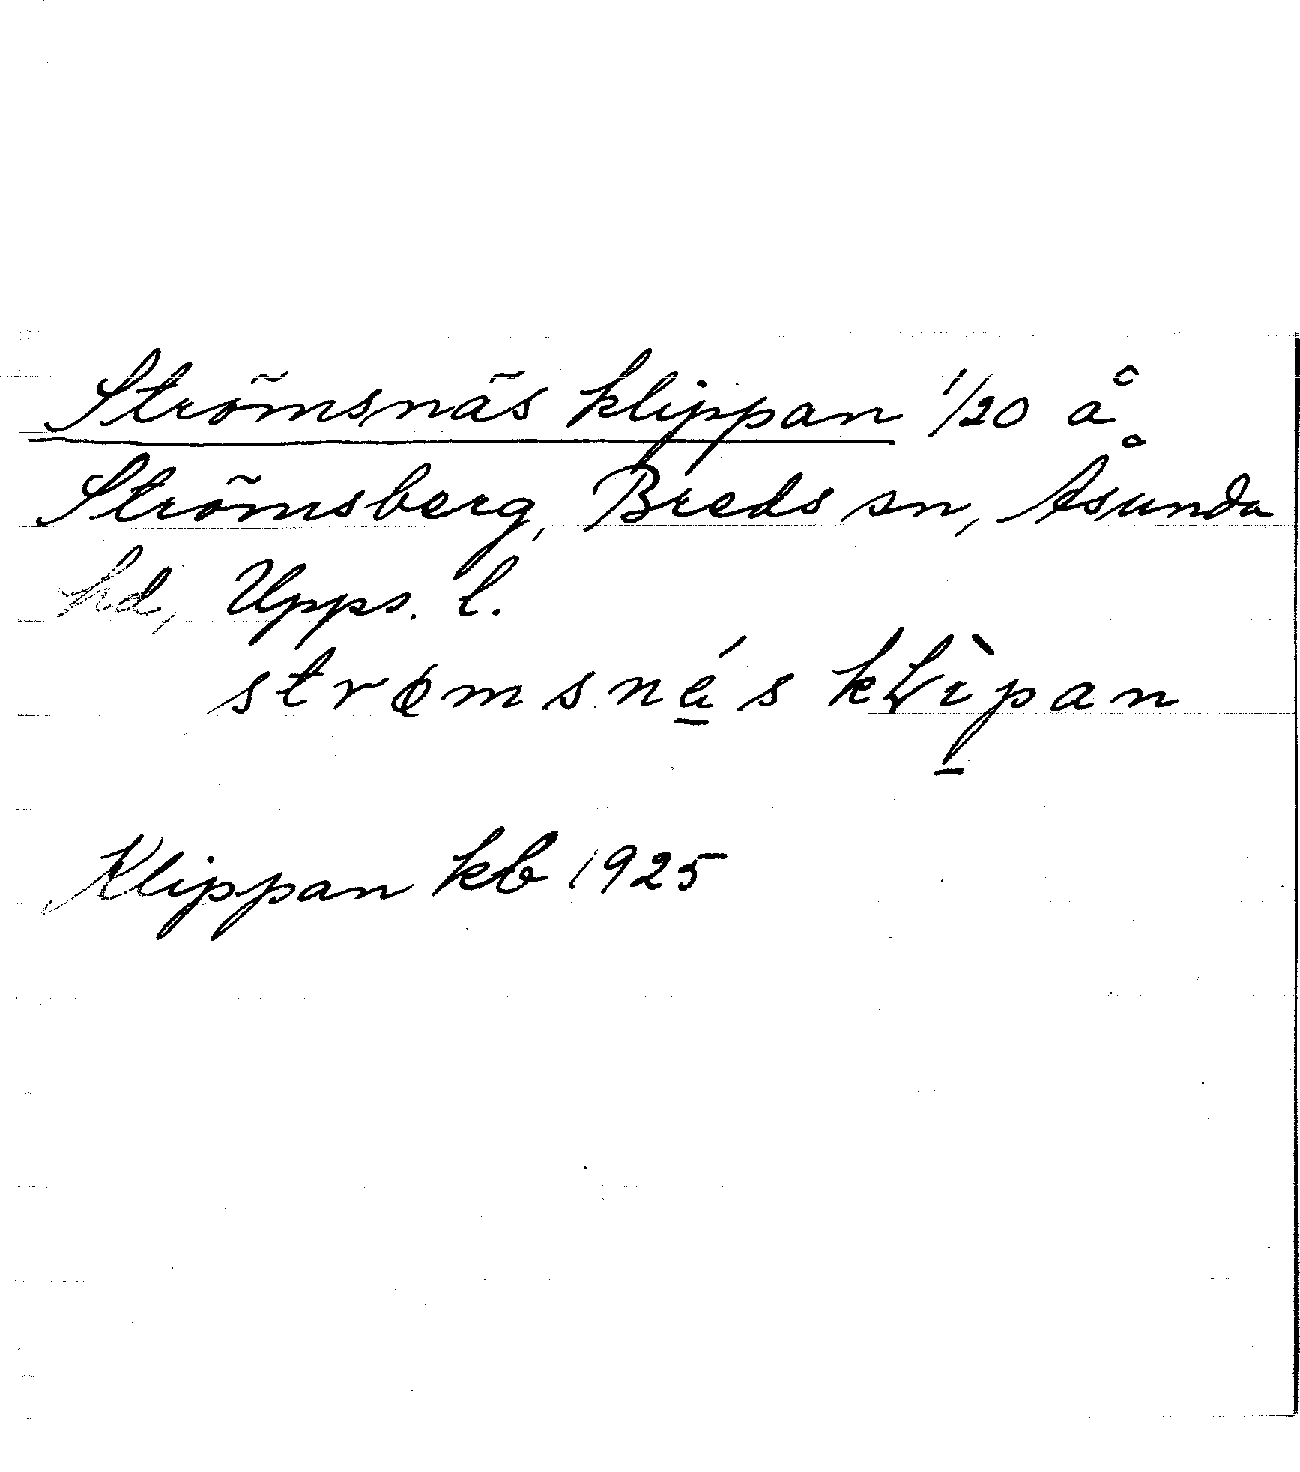 Strömsnäs klippan 1/20 å
Strömsberg, Breds sn, Åsunda
hd, Upps. l.
strømsnä́s kḷìpan
Klippan kb 1925